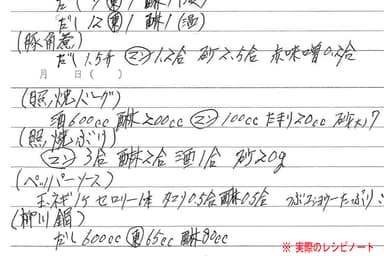 だし 12 濃1 酥1 (酒)
(豚角煮)
だし 1.5升 マン1.2合 砂2.5合 赤味噌0.2合
月 日( )
(照焼バーグ)
酒600cc 酥200cc マン100cc たまり20cc 砂大1
(照焼ぶり)
マン3合 酥2合 酒1合 砂20g
(ペッパーソース)
玉ネギ1ケ セロリー1本 タマリ0.5合 酥0.5合
(柳川鍋)
だし600cc 濃65cc 酥80cc
※ 実際のレシピノート